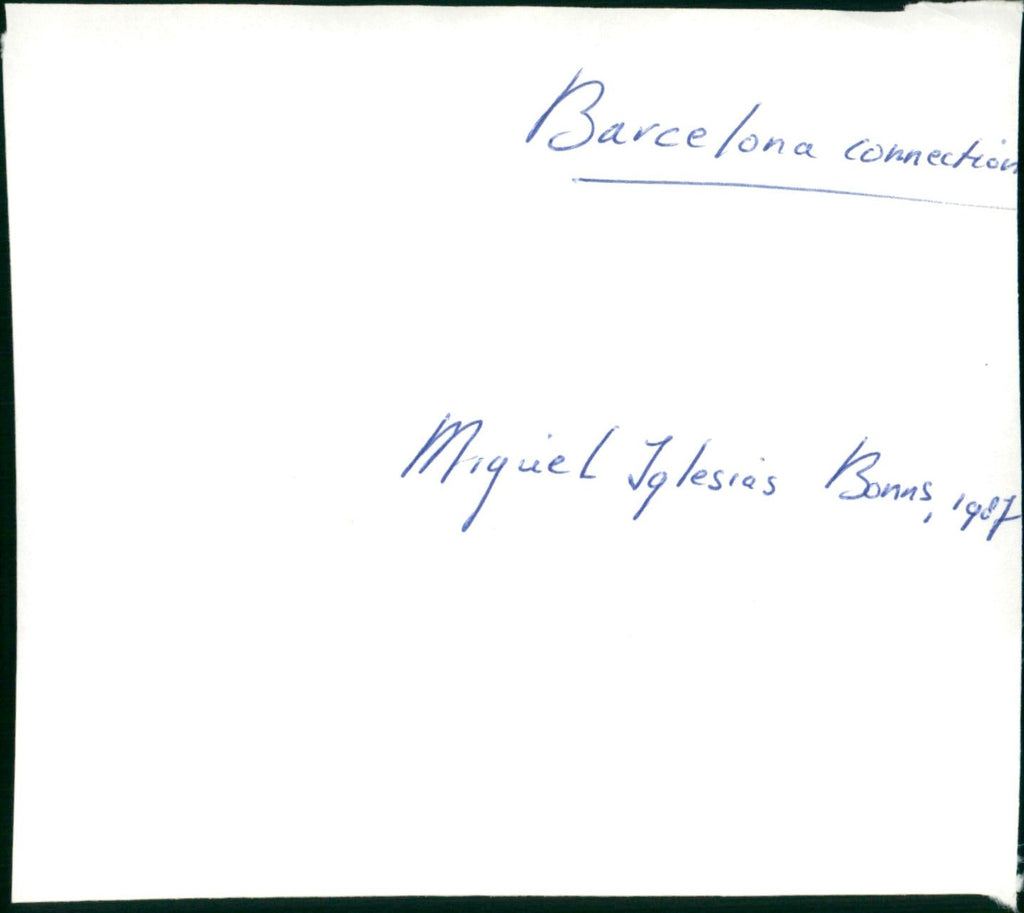 Barcelona connection
Miguel Iglesias Bonns, 1987